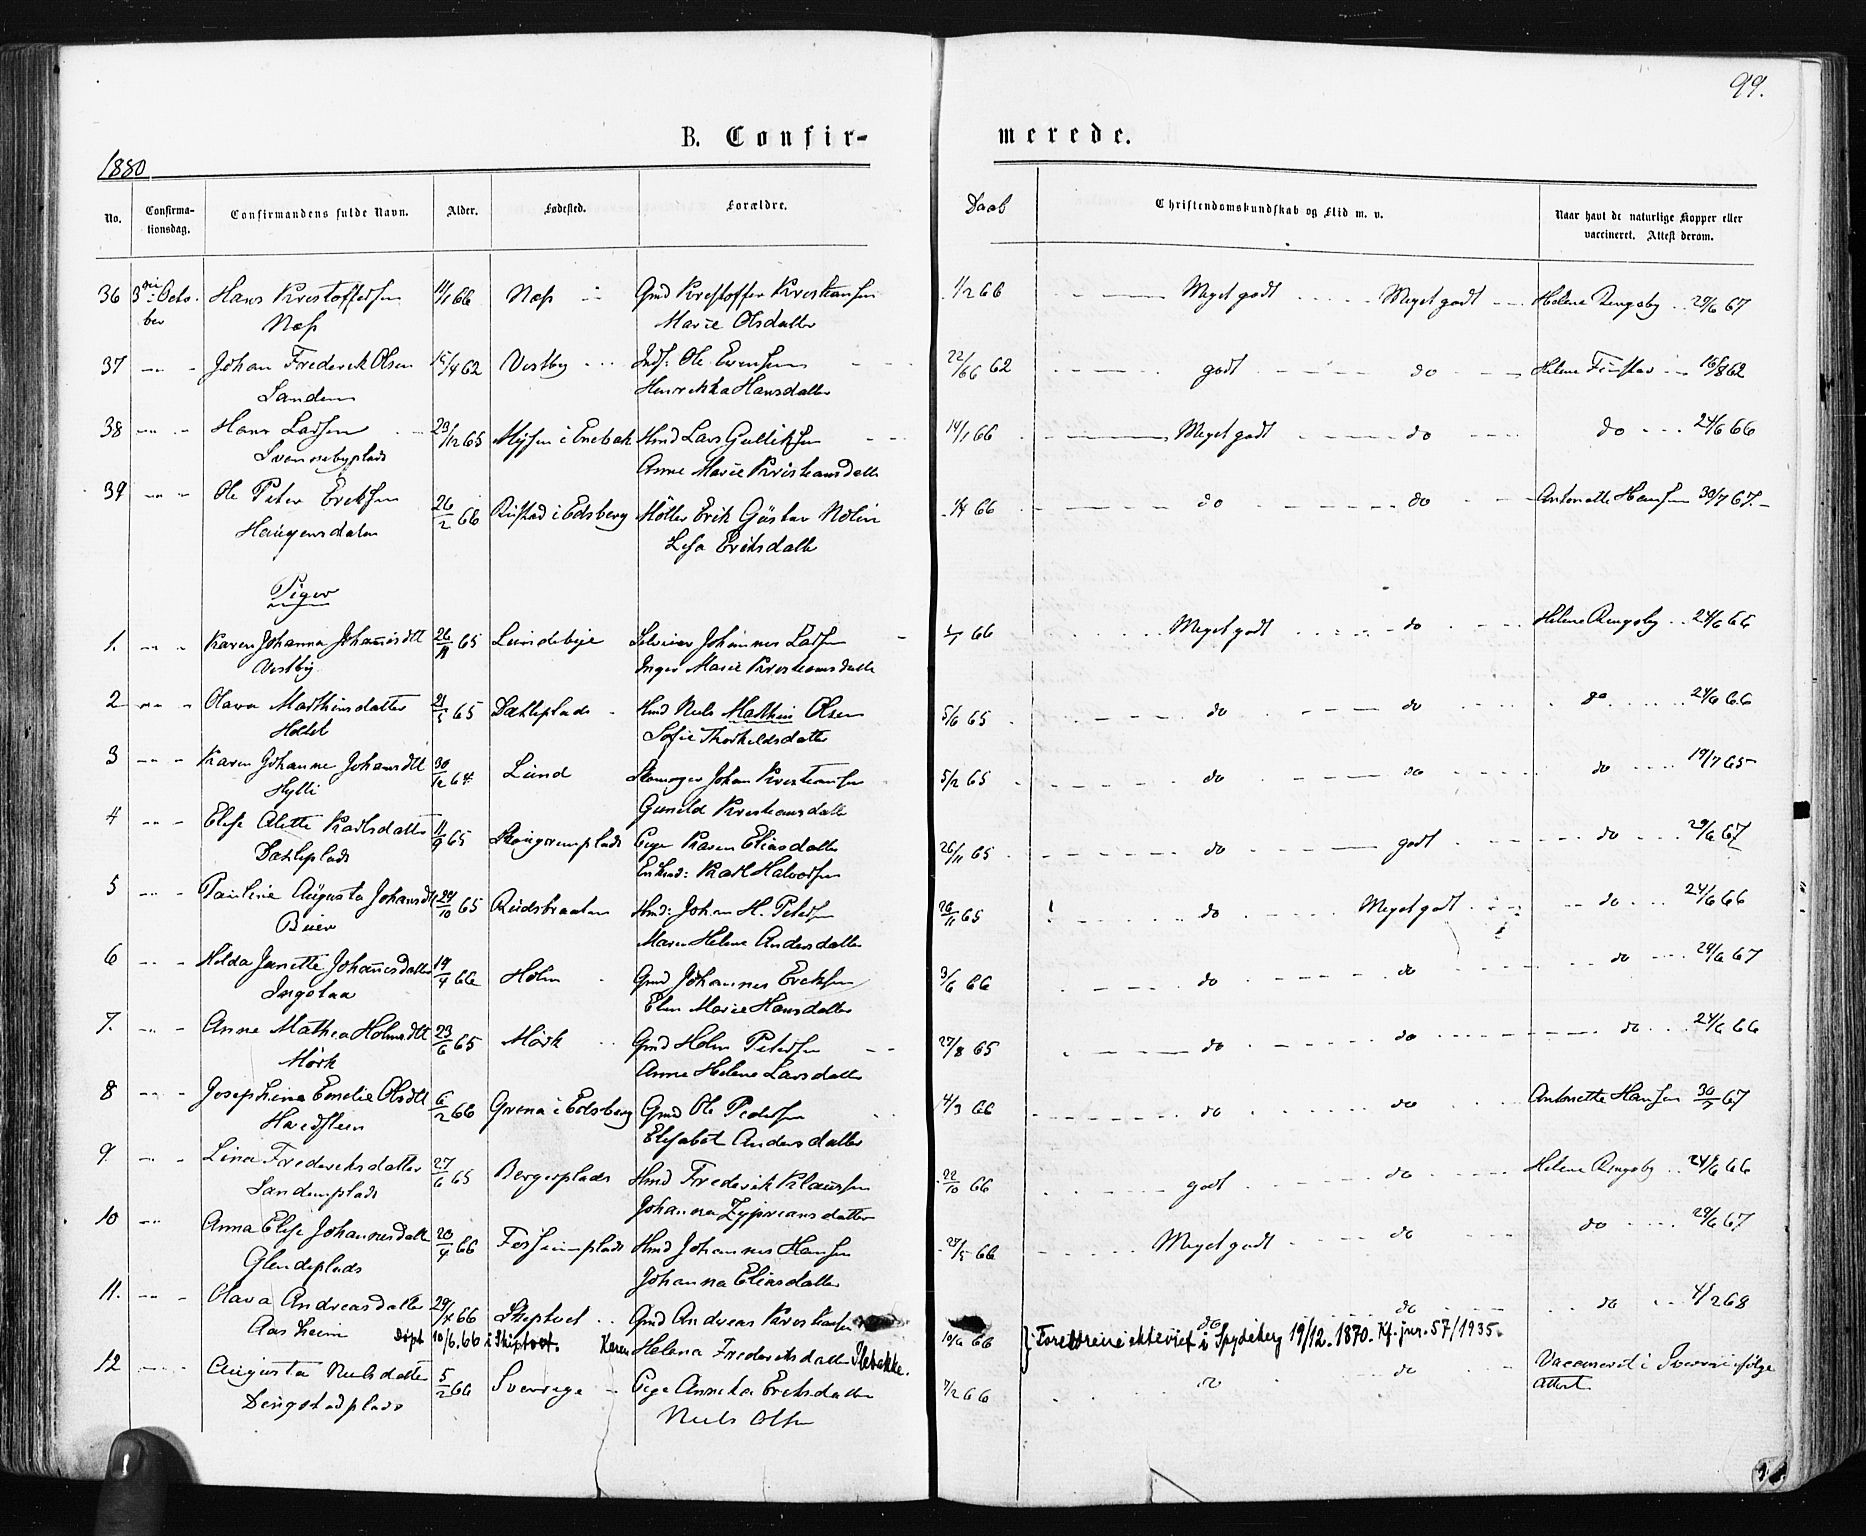 99.
B. Confir- merede.
1880
No. Confirma-tionsdag. Confirmandens fulde Navn. Alder. Fødested. Forældre. Daab Christendomskundskab og Flid m. v. Naar havt de naturlige Kopper eller vaccineret. Attest derom.
36 3die Octo- Hans Kristoffersen 11/1 66 Næs Gmd Kristoffer Kristiansen 1/2 66 Meget godt Meget godt Helene Ringsby 29/6 67
ber Næs Marie Olsdatter
37 Johan Frederik Olsen 15/4 62 Vestby Inds: Ole Evensen 22/66 62 godt do Helene Finstad 16/8 62
Sandem Henrikka Hansdatter
38 Hans Larsen 23/12 65 Mysen i Enebak Hmd Lars Gulliksen 14/1 66 Meget godt do do 24/6 66
Svennebyplads Anne Marie Kristiansdatter
39 Ole Peter Eriksen 26/2 66 Rustad i Edsberg Møller Erik Gustav Nolin 1/4 66 do do Antonette Hansen 30/7 67
Haugensdalen Lisa Eriksdatter
Piger
1. Karen Johanna Johannisdtt 26/11 65 Lundebye Selveier Johannes Larsen 1/1 66 Meget godt do Helene Ringsby 24/6 66
Vestby Inger Marie Kristiansdatter
2 Olava Mathinsdatter 21/5 65 Dahleplads Hmd Nils Mathin Olsen 5/6 65 do do do 24/6 66
Holtet Sofie Thorkildsdatter
3 Karen Johanne Johansdtt 30/12 64 Lund Skomager Johan Kristiansen 5/2 65 do do do 19/7 65
Hylli Gunild Kristiansdatter
4 Elise Alette Karlsdatter 11/9 65 Skaugrumplads Pige Karen Eliasdatter 26/11 65 do godt do 29/6 67
Dahleplads Enkmd: Karl Halvorsen
5 Pauline Augusta Johansdtt 29/10 65 Rudsbraaten Hmd: Johan H. Petersen 26/11 65 do Meget godt do 24/6 66
Buer Maren Helene Andersdatter
6 Hilda Janette Johannesdatter 19/4 66 Holm Gmd Johannes Eriksen 3/6 66 do do do 29/6 67
Ingstaa Elen Marie Hansdatter
7. Anne Mathea Holmsdtt 23/6 65 Mørk Gmd Holm Petersen 27/8 65 do do do 24/6 66
Mørk Anne Helene Larsdatter
8 Josephine Emelie Olsdtt 6/2 66 Grena i Edsberg Gmd Ole Pedersen 4/3 66 do do Antonette Hansen 30/7 67
Haredsteen Elisabet Andersdatter
9. Lina Frederiksdatter 27/6 65 Bergerplads Hmd Frederik Klausen 22/10 66 godt do Helene Ringsby 24/6 66
Sandemplads Johanna Zypriansdatter
10 Anna Elise Johannesdatt 20/4 66 Fosseimplads Hmd Johannes Hansen 27/5 66 Meget godt do do 29/6 67
Glendeplads Johanna Eliasdatter
11. Olava Andreasdatter 29/4 66 Skiptvet Gmd Andreas Kristiansen 10/6 66 do do do 4/2 68
Aasheim døpt 10/6. 66 i Skiptvet. Karen Helena Frederiksdatter Slebakke. Foreldrene ekteviet i Spydeberg 19/12. 1870. Kf. jnr. 57/1935.
12 Augusta Nilsdatter 5/2 66 Sverrige Pige Annika Eriksdatter 7/2 66 do do Vaccineret i Sverrie ifølge
Dingstadplads Niels Olsen attest